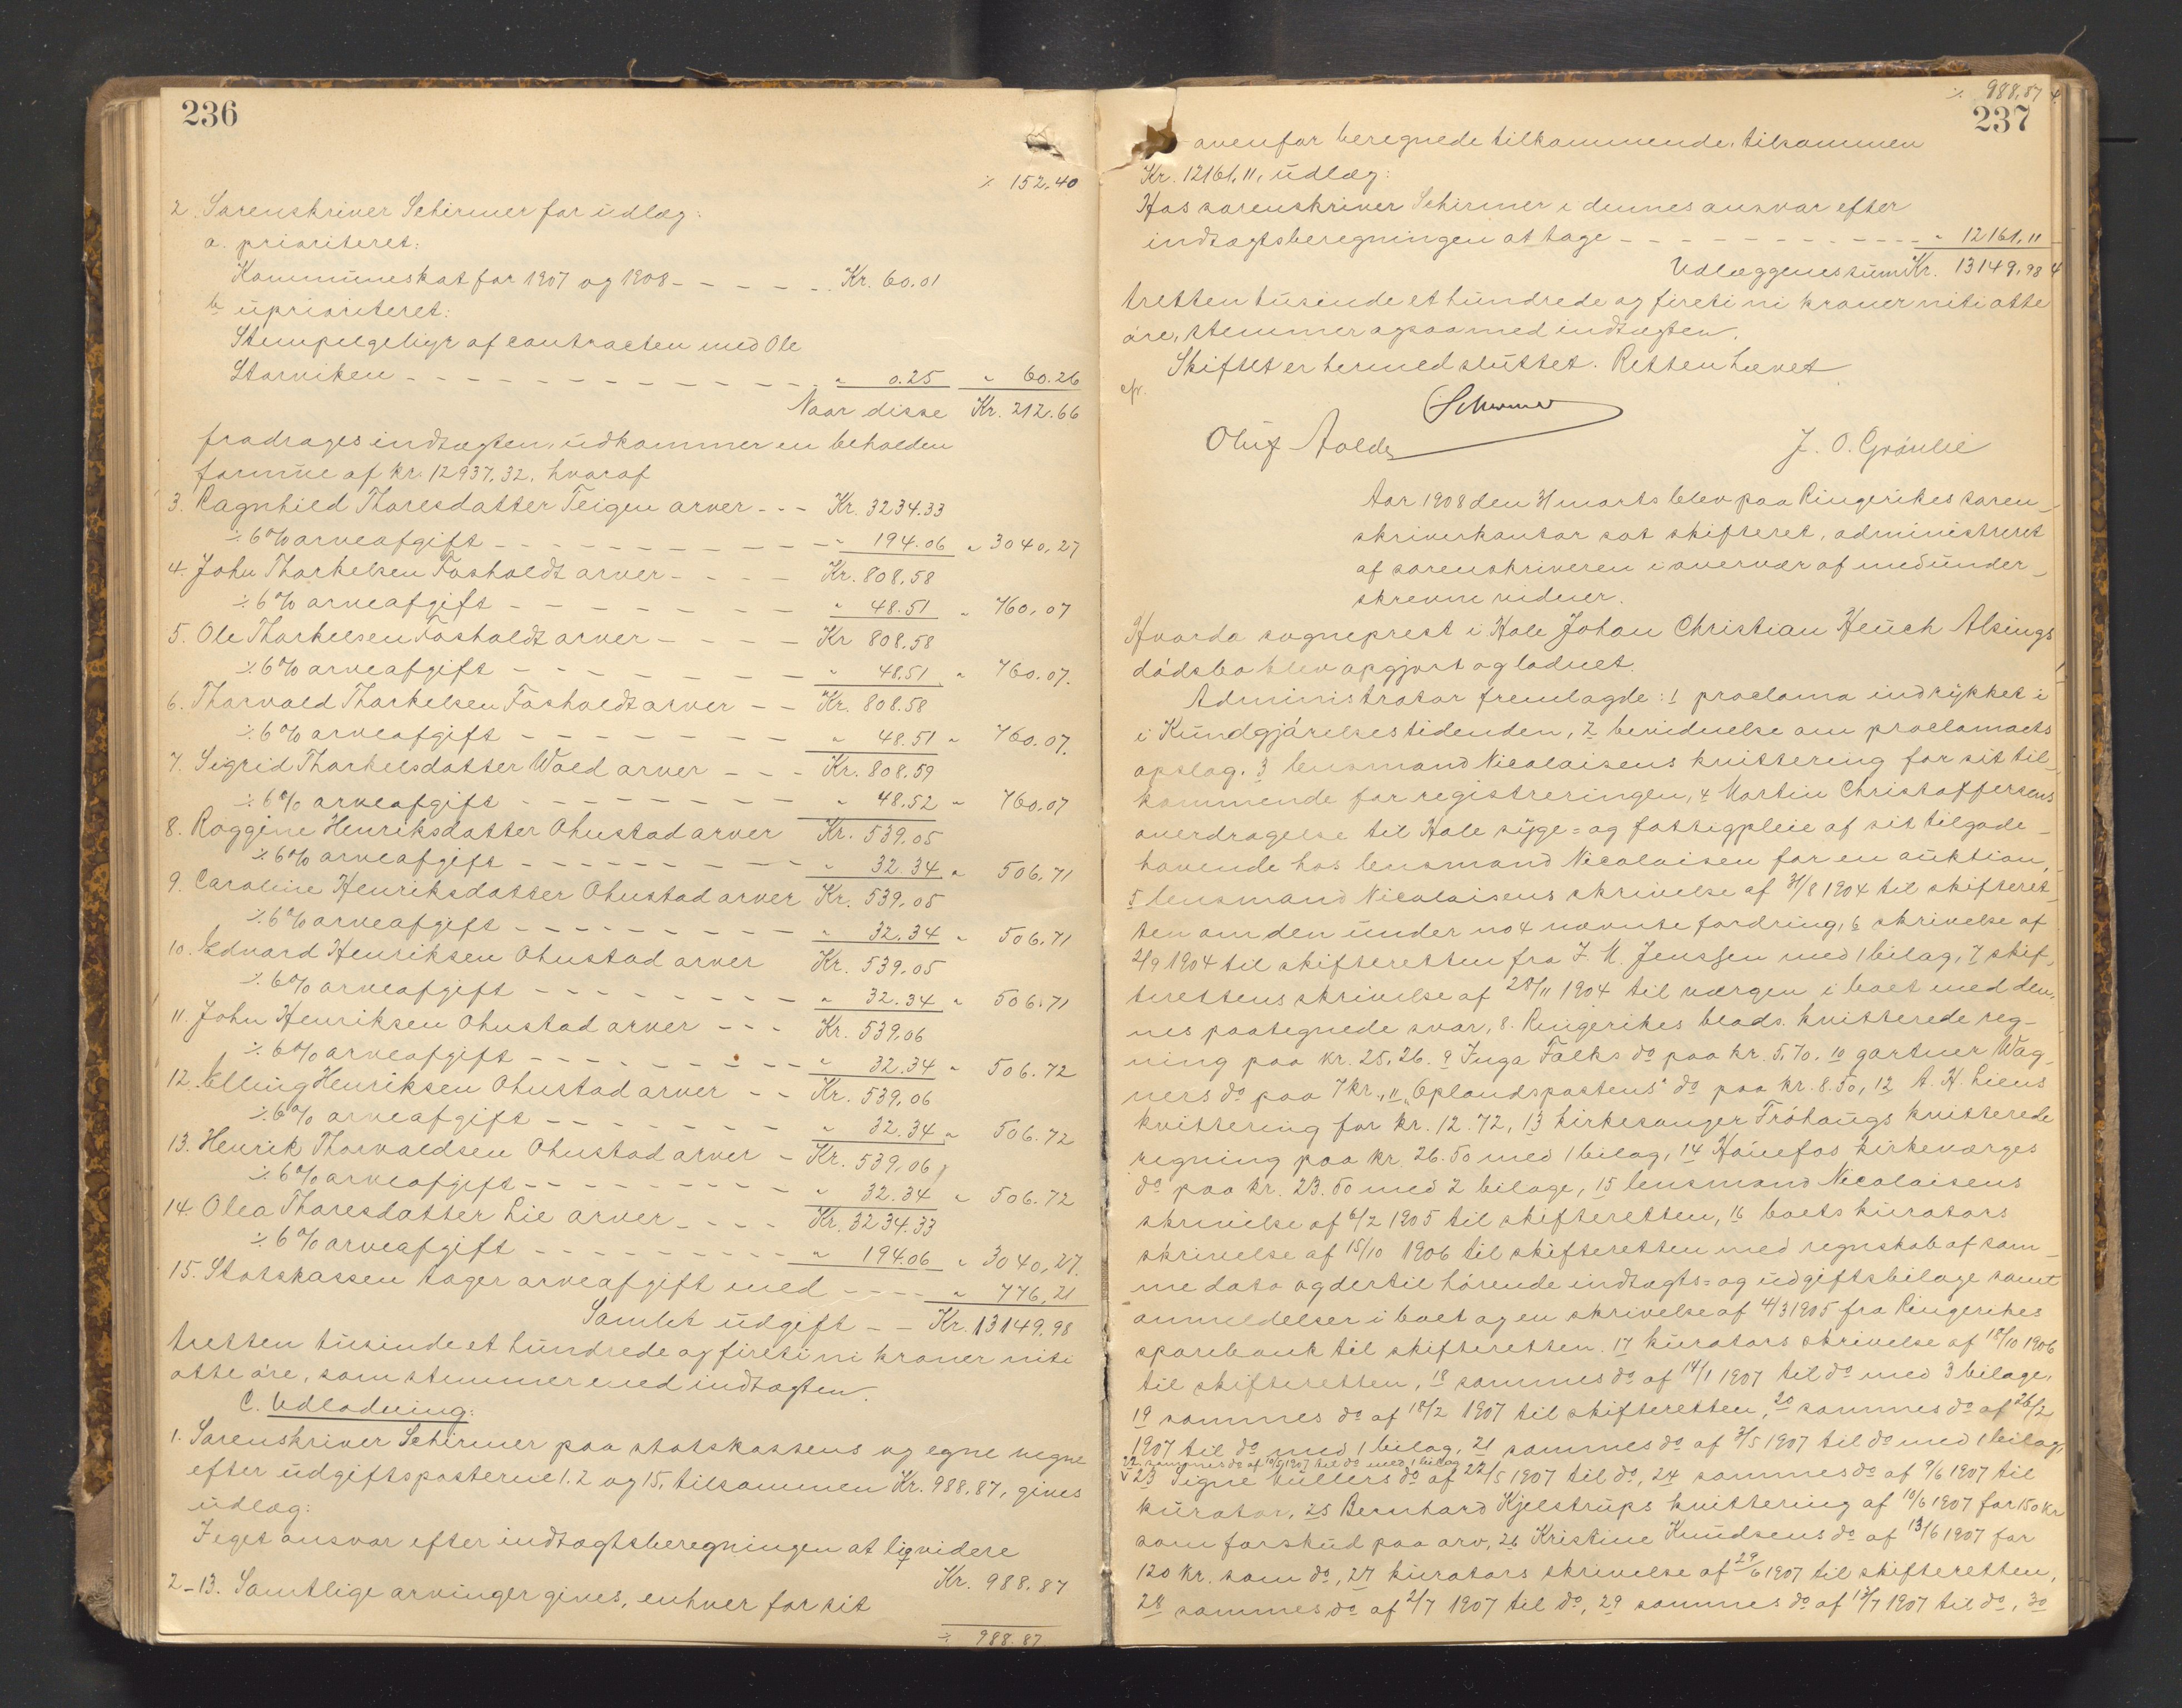 236
٪ 152.40
2. Sorenskriver Schirmer for udlæg:
a. prioriteret:
Kommuneskat for 1907 og 1908 - - - - - Kr. 60.01
b. uprioriteret:
Stempelgebyr af contracten med Ole
Storviken - - - - - - - - - - - - - - „ 0.25 „ 60.26
Naar disse Kr. 212.66
fradrages indtægten, udkommer en beholden
formue af kr. 12937.32, hvoraf
3. Ragnhild Thoresdatter Teigen arver - - - Kr. 3234.33
٪ 6% arveafgift - - - - - - - - - - „ 194.06 „ 3040,27
4. John Thorkelsen Fosholdt arver - - - - Kr. 808.58
٪ 6% arveafgift - - - - - - - - „ 48.51 „ 760,07
5. Ole Thorkelsen Fosholdt arver - - - - Kr 808.58
٪ 6% arveafgift - - - - - - - - „ 48.51 „ 760.07.
6. Thorvald Thorkelsen Fosholdt arver - - Kr. 808.58
٪ 6% arveafgift - - - - - - - - „ 48.51 „ 760.07.
7. Sigrid Thorkelsdatter Wold arver - - - Kr. 808.59
٪ 6% arveafgift - - - - - - - - „ 48.52 „ 760.07
8. Roggine Henriksdatter Ohnstad arver Kr. 539.05
٪ 6% arveafgift - - - - - - - - „ 32.34 „ 506.71
9. Caroline Henriksdatter Ohnstad arver Kr. 539.05
٪ 6% arveafgift - - - - - - - - „ 32.34 „ 506.71
10. Edvard Henriksen Ohnstad arver Kr. 539.05
٪ 6% arveafgift - - - - - - - - „ 32.34 „ 506.71
11. John Henriksen Ohnstad arver - - - Kr. 539.06
٪ 6% arveafgift - - - - - - - - „ 32.34 „ 506.72
12. Elling Henriksen Ohnstad arver - - Kr. 539.06
٪ 6% arveafgift - - - - - - - „ 32.34 „ 506.72
13. Henrik Thorvaldsen Ohnstad arver - Kr. 539.06
٪ 6% arveafgift - - - - - - - - „ 32.34 „ 506.72
14. Olea Thoresdatter Lie arver - - - - Kr. 3234.33
٪ 6% arveafgift - - - - - - - - - „ 194.06 „ 3040,27.
15. Statskassen tager arveafgift med - - - - „ 776,21
Samlet udgift - - Kr. 13149.98
tretten tusinde et hundrede og fireti ni kroner niti
otte øre, som stemmer med indtægten.
C. Udlodning:
1. Sorenskriver Schirmer paa statskassens og egne vegne
efter udgiftsposterne 1.2 og 15, tilsammen Kr. 988.87, gives
udlæg:
I eget ansvar efter indtægtsberegningen at liqvidere
Kr. 988.87
2-13. Samtlige arvinger gives, enhver for sit
٪ 988.87
٪ 988,87
237
ovenfor beregnede tilkommende, tilsammen
Kr. 12161.11, udlæg:
Hos sorenskriver Schirmer i dennes ansvar efter
indtægtsberegningen at tage - - - - - - - - - - - „ 12161,11
Udlæggenes sum Kr. 13149,98
tretten tusinde et hundrede og fireti ni kroner niti otte
øre, stemmer ogsaa med indtægten.
Skiftet er hermed sluttet. Retten hævet.
Schirmer
Oluf Aolde
J. O. Grønlie
Aar 1908 den 31 marts blev paa Ringerikes soren-
skriverkontor sat skifteret, administreret
af sorenskriveren i overvær af medunder-
skrevne vidner.
Hvorda sogneprest i Hole Johan Christian Heuch Alsings
dødsbo blev opgjort og lodnet.
Administrator fremlagde: 1 proclama indrykket i
i Kundgjørelsestidenden, 2 bevidnelse om proclamaets
opslag, 3 lensmand Nicolaisens kvittering for sit til-
kommende for registreringen, 4 Martin Christoffersens
overdragelse til Hole syge= og fattigpleie af sit tilgode-
havende hos lensmand Nicolaisen for en auktion,
5 lensmand Nicolaisens skrivelse af 31/8 1904 til skifteret-
ten om den under no 4 nævnte fordring, 6 skrivelse af
2/9 1904 til skifteretten fra J. M. Jenssen med 1 bilag, 7 skif-
terettens skrivelse af 28/11 1904 til værgen i boet med den-
nes paategnede svar, 8. Ringerikes blads kvitterede reg-
ning paa kr. 25.26. 9 Inga Falks do paa kr. 5.70, 10 gartner Wag-
ners do paa 7 kr., 11 „Oplandspostens" do paa kr. 8.50, 12 A. H. Liens
kvittering for kr. 12.72, 13 kirkesanger Frøhaugs kvitterede
regning paa kr. 26.50 med 1 bilag, 14 Hønefos kirkeværges
do paa kr. 23.50 med 2 bilage, 15 lensmand Nicolaisens
skrivelse af 6/2 1905 til skifteretten, 16 boets kurators
skrivelse af 15/10 1906 til skifteretten med regnskab af sam-
me dato og dertil hørende indtægts= og udgiftsbilage samt
anmeldelser i boet og en skrivelse af 4/3 1905 fra Ringerikes
sparebank til skifteretten. 17 kurators skrivelse af 18/10 1906
til skifteretten, 18 sammes do af 14/1 1907 til do med 3 bilage,
19 sammes do af 18/2 1907 til skifteretten, 20 sammes do af 26/2
1907 til do med 1 bilag, 21 sammes do af 3/5 1907 til do med 1 bilag,
22 sammes do af 10/5 1907 til do med 1 bilag
23 Signe Müllers do af 22/5 1907 til do, 24 sammes do af 9/6 1907 til
kurator, 25 Bernhard Kjelstrups kvittering af 10/6 1907 for 150 kr
som forskud paa arv, 26 Kristine Knudsens do af 13/6 1907 for
120 kr. som do, 27 kurators skrivelse af 29/6 1907 til skifteretten,
28 sammes do af 2/7 1907 til do, 29 sammes do af 13/7 1907 til do, 30